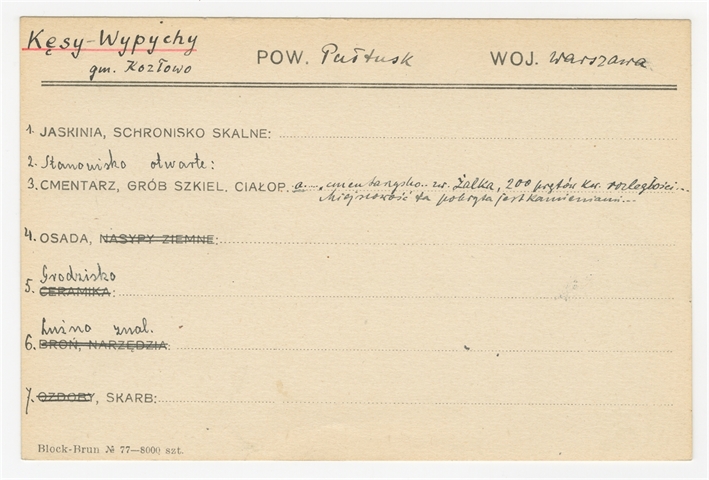 Kęsy-Wypychy
gm. Kozłowo
POW. Pułtusk WOJ. Warszawa
1. JASKINIA, SCHRONISKO SKALNE:
2. Stanowisko otwarte:
3. CMENTARZ, GRÓB SZKIEL. CIAŁOP. a. cmentarzysko zw. Żalka, 200 prętów kw. rozległości
Miejscowość ta pokryta jest kamieniami
4. OSADA, NASYPY ZIEMNE:
Grodzisko
5. CERAMIKA:
Luźno znal.
6. BROŃ, NARZĘDZIA:
7. OZDOBY, SKARB:
Block-Brun № 77—8000 szt.